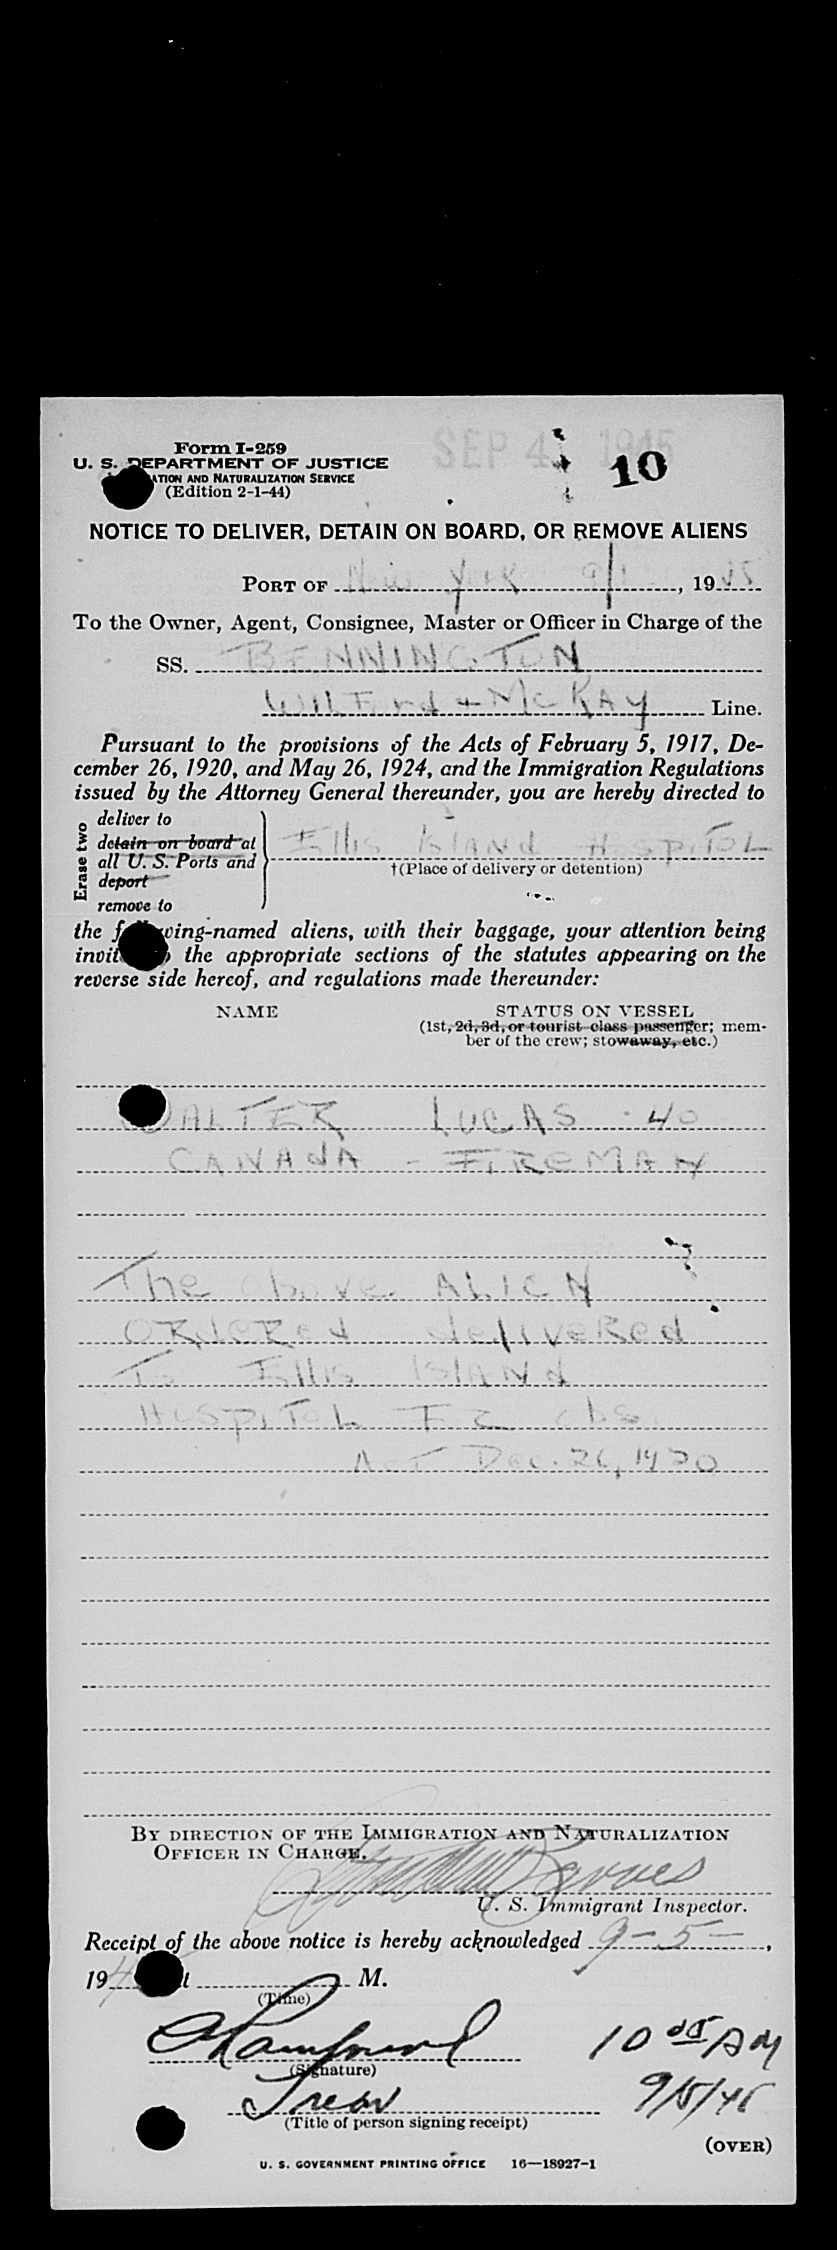 SEP 4 1945
Form I-259
10
U. S. DEPARTMENT OF JUSTICE
ATION AND NATURALIZATION SERVICE
(Edition 2-1-44)
NOTICE TO DELIVER, DETAIN ON BOARD, OR REMOVE ALIENS
PORT OF New York 9/1, 1945
To the Owner, Agent, Consignee, Master or Officer in Charge of the
SS. BENNINGTON
WILFord + McKAy Line.
Pursuant to the provisions of the Acts of February 5, 1917, De-
cember 26, 1920, and May 26, 1924, and the Immigration Regulations
issued by the Attorney General thereunder, you are hereby directed to
Erase two
deliver to
detain on board at
all U. S. Ports and
deport
remove to
Ellis Island Hospitol
†(Place of delivery or detention)
the following-named aliens, with their baggage, your attention being
invit the appropriate sections of the statutes appearing on the
reverse side hereof, and regulations made thereunder:
NAME STATUS ON VESSEL
(1st, 2d, 3d, or tourist class passenger; mem-
ber of the crew; stowaway, etc.)
WALTER LUCAS - 40
CANAdA - FIREMAN
The above ALIEN
ORdeRed deliveRed
To Ellis ISLANd
HospiTol
Act Dec. 26, 1920
BY DIRECTION OF THE IMMIGRATION AND NATURALIZATION
OFFICER IN CHARGE.
Barnes
U. S. Immigrant Inspector.
Receipt of the above notice is hereby acknowledged 9-5-,
194 t M.
(Time)
10 05 AM
(Signature)
9/5/45
(Title of person signing receipt)
(OVER)
U. S. GOVERNMENT PRINTING OFFICE 16—18927-1